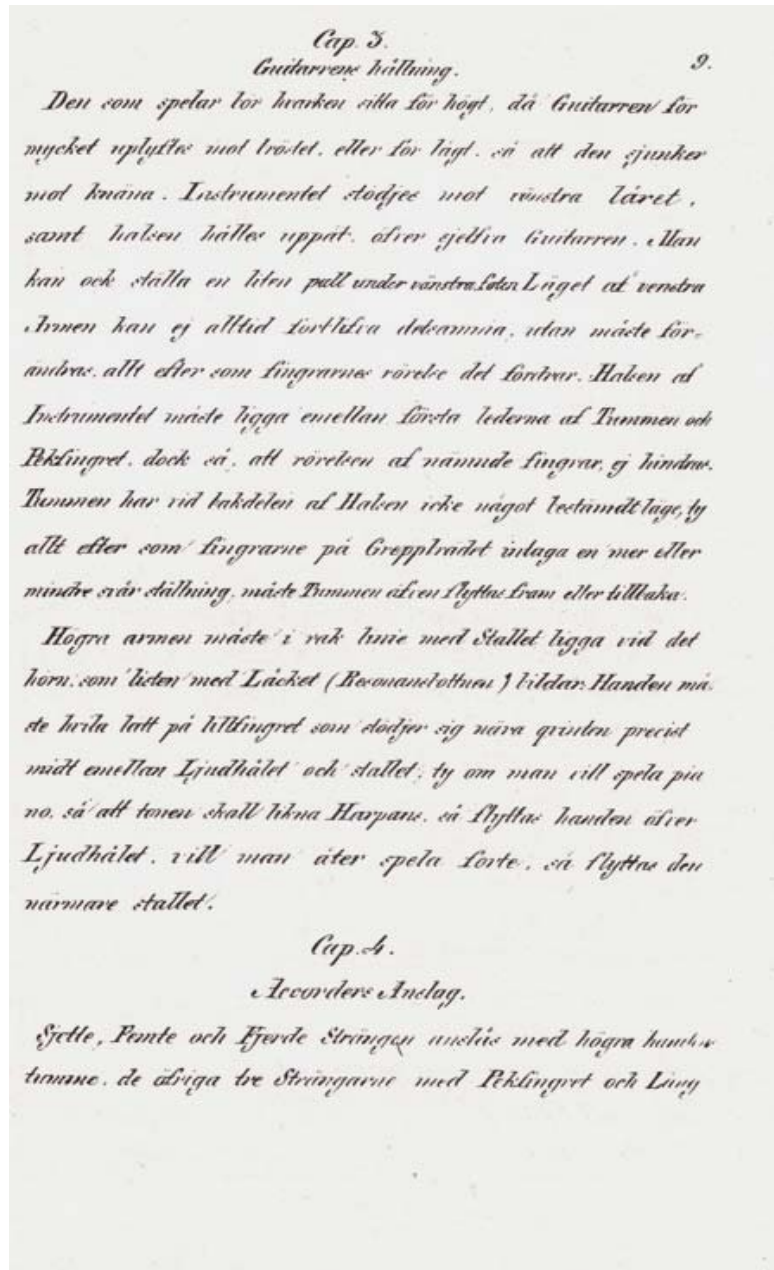 Cap. 3.
9.
Guitarrens hållning.
Den som spelar bör hvarken sitta för högt, då Guitarren för
mycket uplyftes mot bröstet, eller för lågt, så att den sjunker
mot knäna. Instrumentet stödjes mot vänstra låret,
samt halsen hålles uppåt, öfver sjelfva Guitarren. Man
kan ock ställa en liten pall under vänstra foten Läget af venstra
Armen kan ej alltid fortblifva detsamma, utan måste för-
ändras, allt efter som fingrarnes rörelse det fordrar. Halsen af
Instrumentet måste ligga emellan första lederna af Tummen och
Pekfingret, dock så, att rörelsen af nämnde fingrar, ej hindras.
Tummen har vid bakdelen af Halsen icke något bestämdt läge, ty
allt efter som fingrarne på Greppbrädet intaga en mer eller
mindre svår ställning, måste Tummen äfven flyttas fram eller tillbaka.
Högra armen måste i rak linie med Stallet ligga vid det
hörn, som listen med Låcket (Resonansbottnen) bildar. Handen må-
ste hvila lätt på lillfingret som stödjer sig nära qvinten precist
midt emellan Ljudhålet och stallet, ty om man vill spela pia
no, så att tonen skall likna Harpans, så flyttas handen öfver
Ljudhålet, vill man åter spela forte, så flyttas den
närmare stallet.
Cap. 4.
Accorders Anslag.
Sjette, Femte och Fjerde Strängen anslås med högra handens
tumme, de öfriga tre Strängarne med Pekfingret och Lång